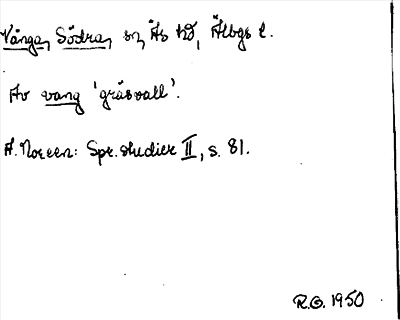 Vånga, Södra, sn Ås hd, Älvbgs l.
Av vang 'gräsvall'.
A. Noreen: Spr. studier II, s. 81.
R.G. 1950